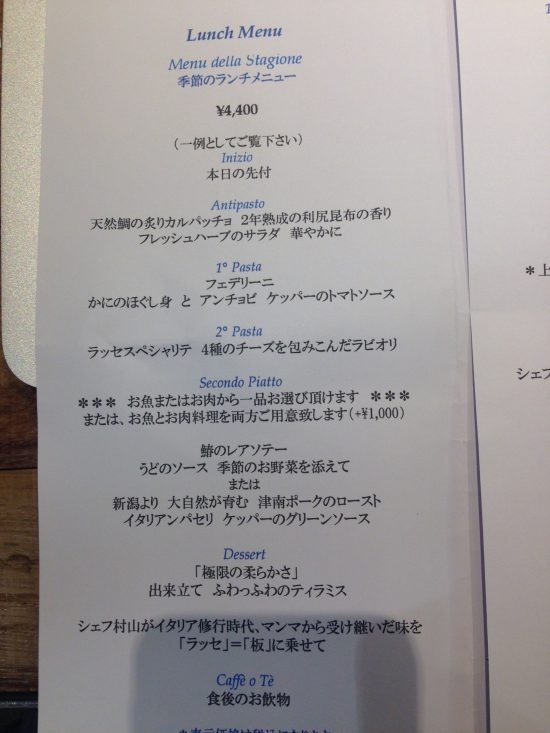 Lunch Menu
Menu della Stagione
季節のランチメニュー
¥4,400
(一例としてご覧下さい)
Inizio
本日の先付
Antipasto
天然鯛の炙りカルパッチョ 2年熟成の利尻昆布の香り
フレッシュハーブのサラダ 華やかに
1° Pasta
フェデリーニ
かにのほぐし身 と アンチョビ ケッパーのトマトソース
2° Pasta
ラッセスペシャリテ 4種のチーズを包みこんだラビオリ
Secondo Piatto
＊＊＊ お魚またはお肉から一品お選び頂けます ＊＊＊
または、お魚とお肉料理を両方ご用意致します(+¥1,000)
鰆のレアソテー
うどのソース 季節のお野菜を添えて
または
新潟より 大自然が育む 津南ポークのロースト
イタリアンパセリ ケッパーのグリーンソース
Dessert
「極限の柔らかさ」
出来立て ふわっふわのティラミス
シェフ村山がイタリア修行時代、マンマから受け継いだ味を
「ラッセ」＝「板」に乗せて
Caffè o Tè
食後のお飲物
＊上
シェフ